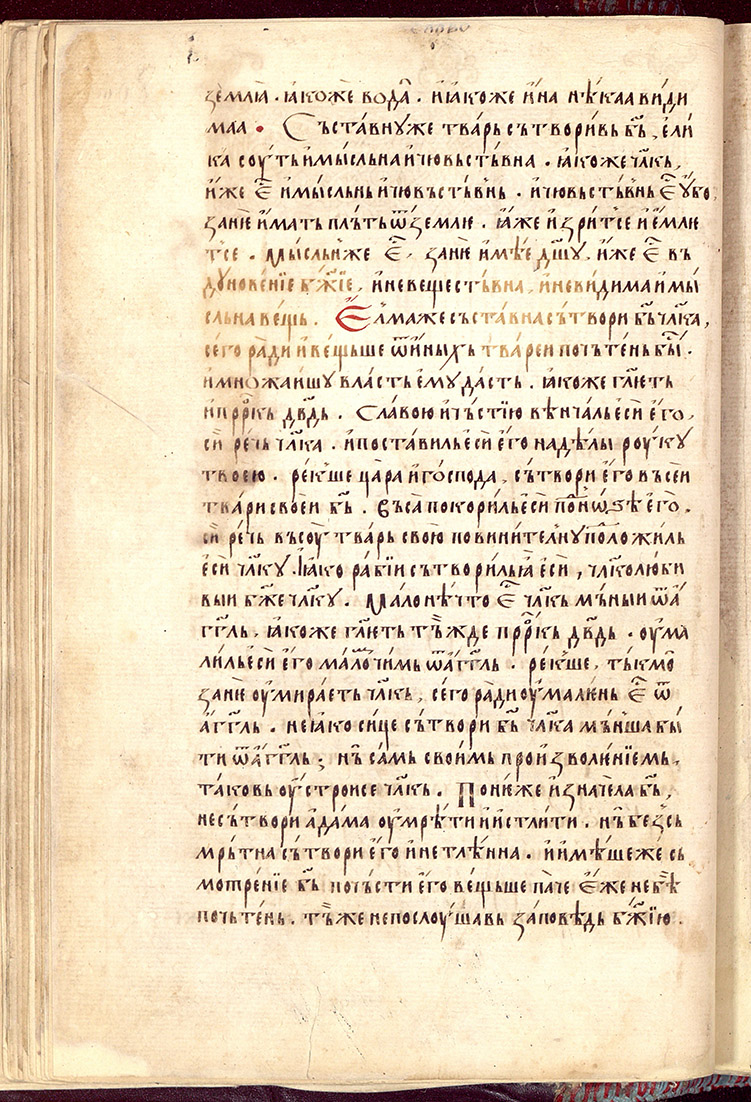 землꙗ · ꙗкоже вода̀ · и҆ꙗкоже и҆́на нѣ́каа ви́ди
маа · Съста́внꙋже тва́рь сътвори́вь бь҃, е҆ли
ка соу́ть и҆мы́сльна и҆чю́вьстъвна · ꙗ҆́коже чл҃кь,
и҆́же е҆͡ и҆мы́сльнь и҆чю́въстъвнь · и҆чю́вьстъвнь е҆͡ ꙋ҆́бо
занѐ и҆́мать плъ́ть ѿземлю · ꙗ҆́же и҆зри́тсе и҆е҆́млю
тсе · мы́сльнже е҆͡, занѐ и҆мѣ́е дш҃ꙋ, и҆́же е҆͡ въ
дꙋнове́нїе бж҃їе, и҆невеще́стъвна, и҆неви́дима и҆мы́
сльна ве́щь · Е҆лмаже съста́вна сътвори бь҃ чл҃ка,
сего̀ ра́ди и҆ве́щьше ѿи҆ны́хь тва́реи почьте́нь бы́ ·
и҆мно́жаишꙋ вла́сть е҆мꙋ да́сть · ꙗ҆́коже гл҃еть
и҆прⷪ҇ркь дв҃дь · Сла́вою и҆чъ́стїю вѣнча́ль е҆сѝ е҆го̀,
сѝ ре́чь чл҃ка · и҆поста́виль е҆сѝ е҆го̀ надѣ́лы роу́кꙋ
твоею · ре́кꙿше ца́ра и҆го́спода, сътвори е҆го̀ въсе́и
тва́ри свое́и бь҃ · Въса покори́ль е҆сѝ поⷣно́ꙁѣ е҆гѡ̀ ·
сѝ ре́чь въсоу̀ тва́рь свою̀ повини́телнꙋ положи́ль
е҆сѝ чл҃кꙋ · Ꙗ҆́ко ра́бїи сътвори́ль ꙗ҆̀ е҆сѝ, чл҃колю́би
выи бж҃е чл҃кꙋ · Ма́ло нѣ́что е҆͡ чл҃кь мъ́ныи ѿа҆́
гг҃ль, ꙗ҆́коже гл҃еть тъ́жде прⷪ҇ркь дв҃дь · оу҆ма
ли́ль е҆сѝ е҆го̀ ма́лочимь ѿа҆́гг҃ль · ре́кꙿше, тъ́кмо
занѐ оу҆мира́еть чл҃кь, сего̀ ра́ди оу҆мале́нь е҆͡ ѿ
а҆́гг҃ль · неꙗ҆́ко си́це сътвори бь҃ чл҃ка мъ́нша бы́
ти ѿа҆́гг҃ль ; нъ̀ са́мь свои́мь прои҆зволе́нїемь,
та́ковь оу҆стро́исе чл҃кь · Поне́же и҆значе́ла бь҃,
несътвори а҆да́ма оу҆мрѣ́ти и҆и҆стли́ти · нъ̀ безꙿсь
мрь́тна сътвори е҆го̀ и҆нетлѣ́нна · и҆и҆мѣ́шеже сь
мотре́нїе бь҃ почъ́сти е҆го̀ ве́щьше па́че е҆́же небѣ̀
почьте́нь · тъ́же непослоу́шавь за́повѣдь бж҃їю ·